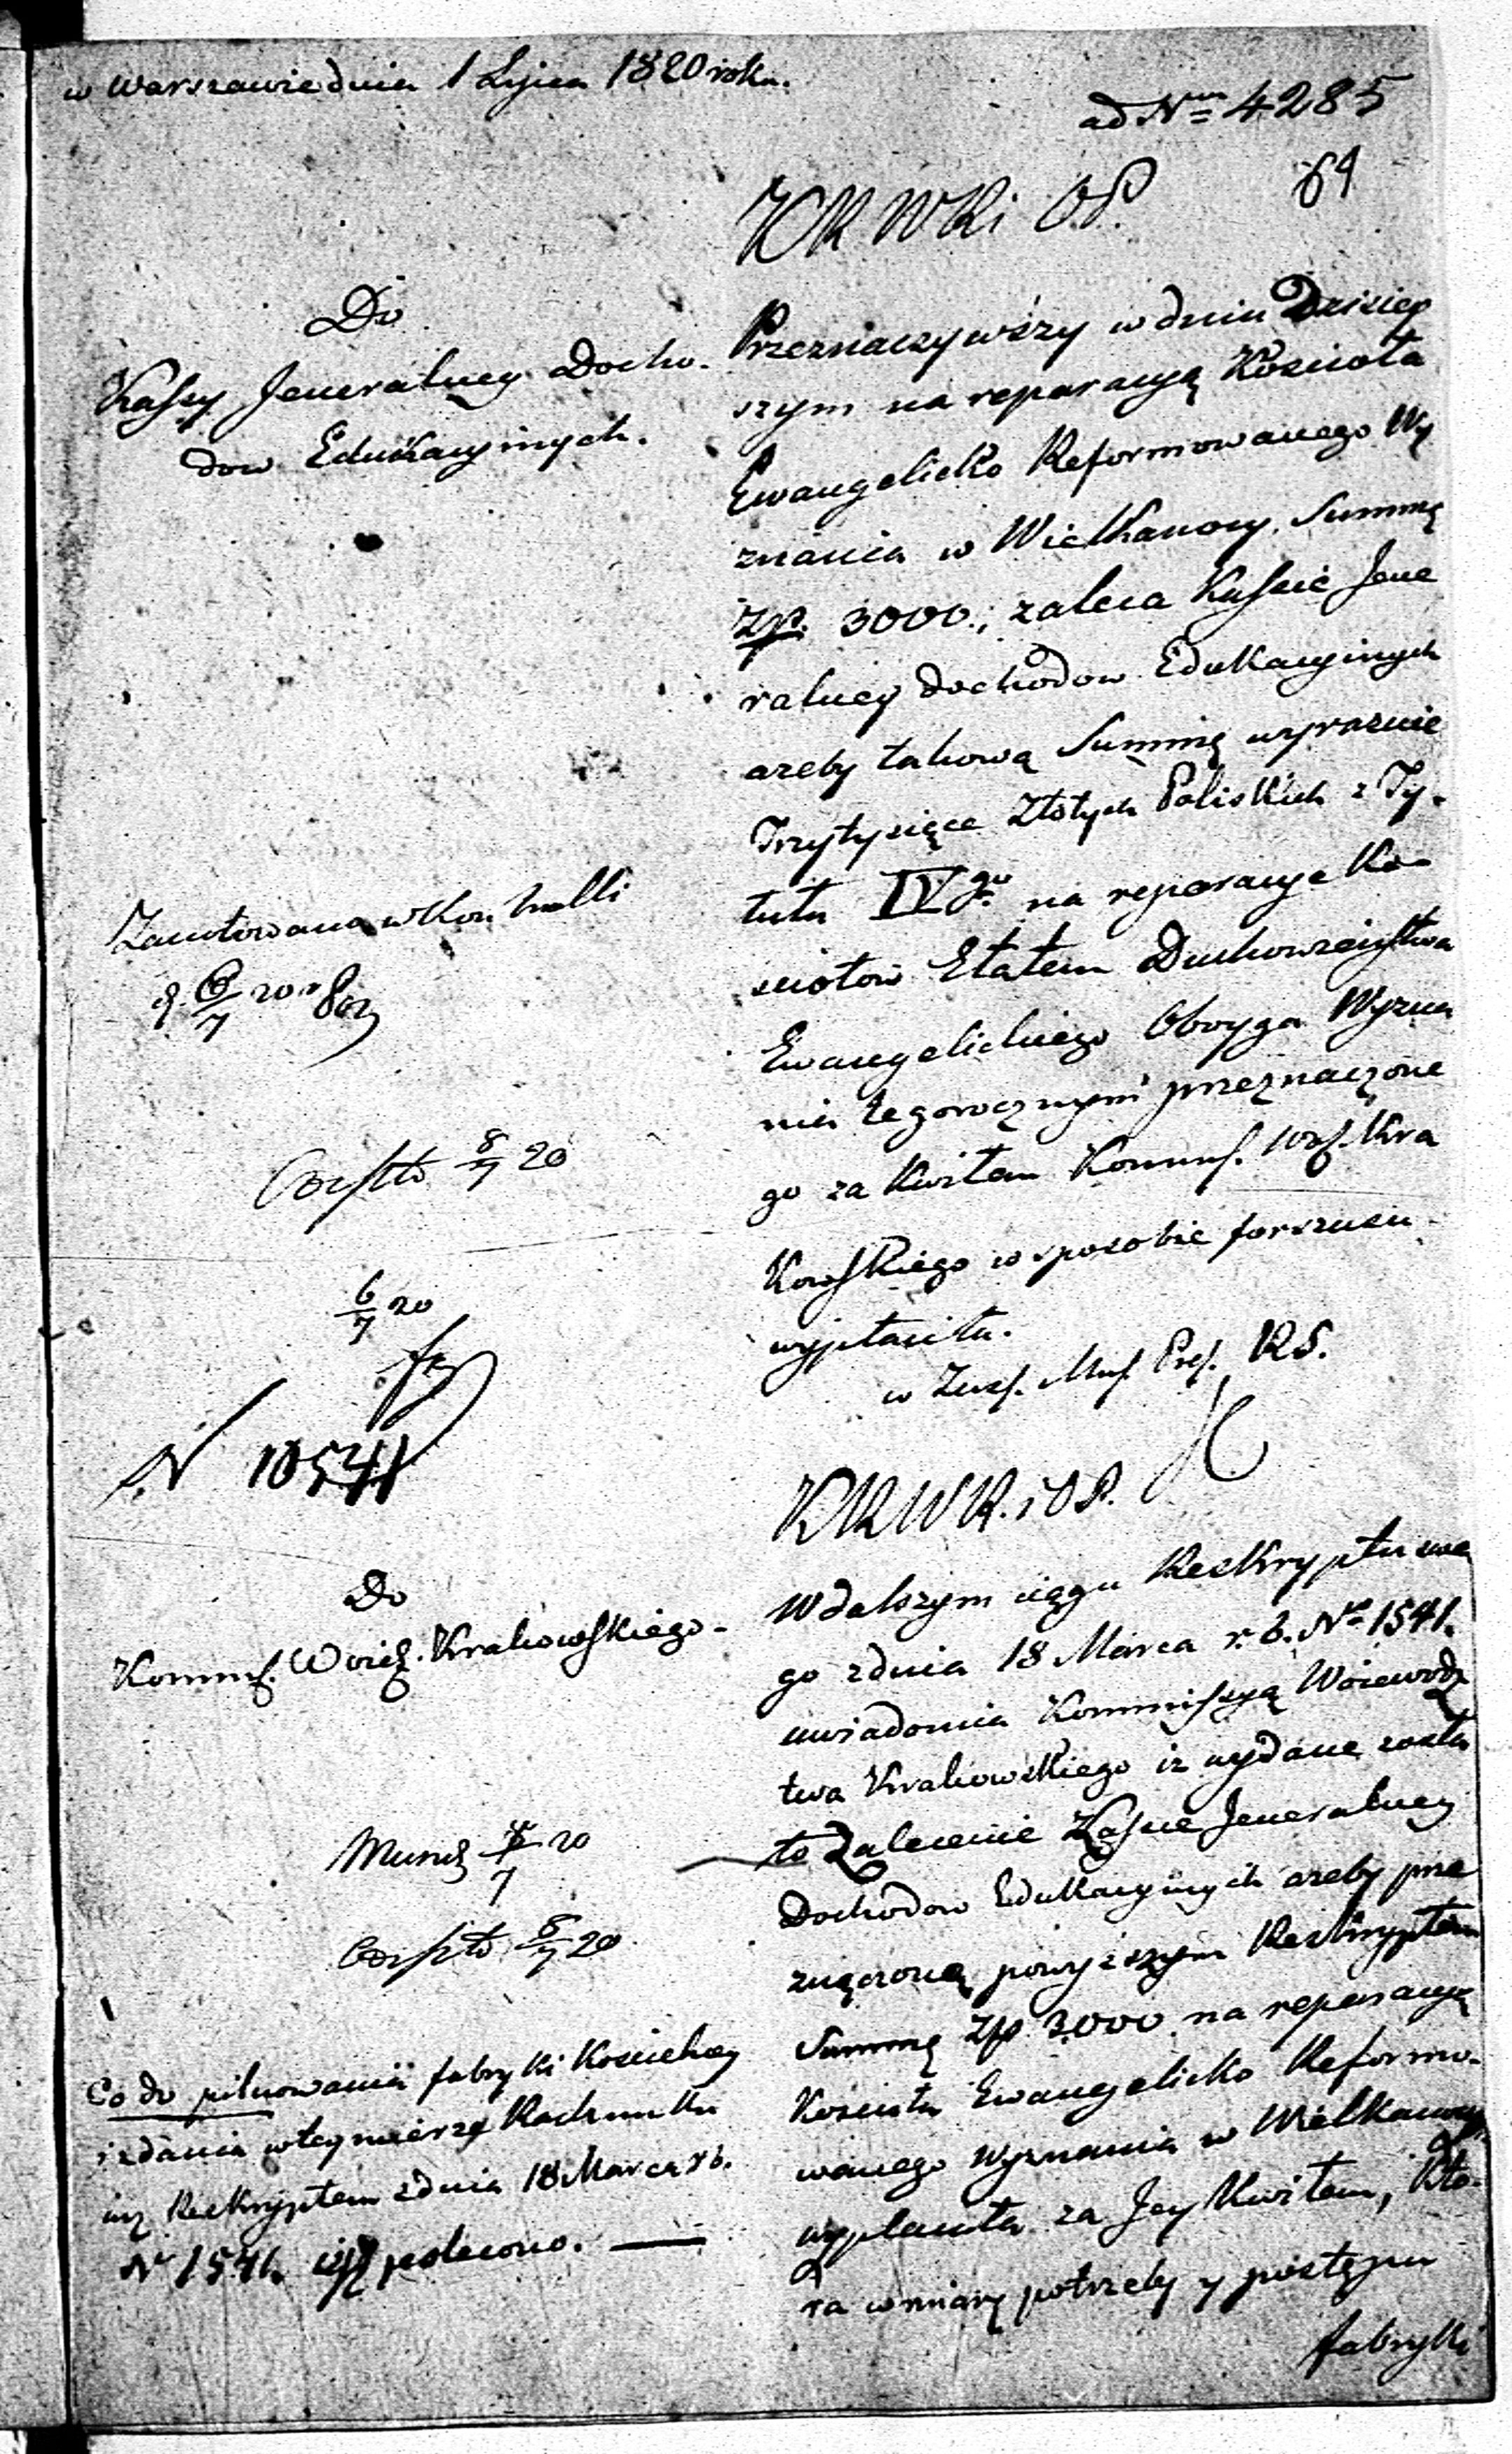 w Warszawie dnia 1 Lipca 1820 roku.
ad Nrum 4285
64
KRWRi OP.
Do
Kassy Jeneralney Docho-
dow Edukacyinych.
Przeznaczywszy w dniu Dzisiey
szym na reparacyą Kościoła
Ewangelicko Reformowanego Wy
znania w Wielkanocy, Summę
Złp. 3000.; zaleca Kassie Jene
ralney dochodow Edukacyinych
ażeby takową Summę wyraznie
Trzy tysiące Złotych Polskich z Ty-
tułu IVgo na reparacye Ko-
sciołow Etatem Duchowieństwa
Ewangelickiego Oboyga Wyzna
nia tegorocznym przeznaczone
go za Kwitem Kommis. Woj. Kra
kowskiego w sposobie forszusu
wypłaciła.
w Zas. Min. Prez. RS.
Zanotowana w Kontrolli
d. 6/7 20
Odesłto 8/7 20
6/7 20
N 10541
KRWR. i OP.
Do
Kommis. Wojew. Krakowskiego.
W dalszym ciągu Reskryptu swe
go z dnia 18 Marca r. b. No 1541.
uwiadomia Kommissyą Woiewodz
twa Krakowskiego iz wydane zosta
to Zalecenie Kassie Jeneralney
Dochodow Edukacyinych azeby prze
znaczoną powyższym Reskryptem
Summę Złp 3000 na reparacyą
Kosciola Ewangelicko Reformo-
wanego Wyznania w Wielkanocy
wypłaciła za Jey Kwitem, Kto-
ra w miarę potrzeby y postępu
fabryki
Mund 7/7 20
Odesłto 8/7 20
Co do pilnowania fabryki Koscielney
i zdania w tey mierze Rachunku
iuż Reskryptem z dnia 18 Marca r b.
Nr 1541. iest polecono.